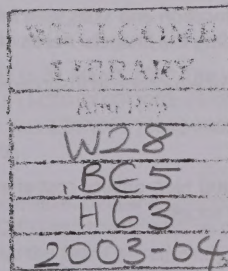 WELLCOME
LIBRARY
Ann Rep
W28
.BE5
H63
2003-04